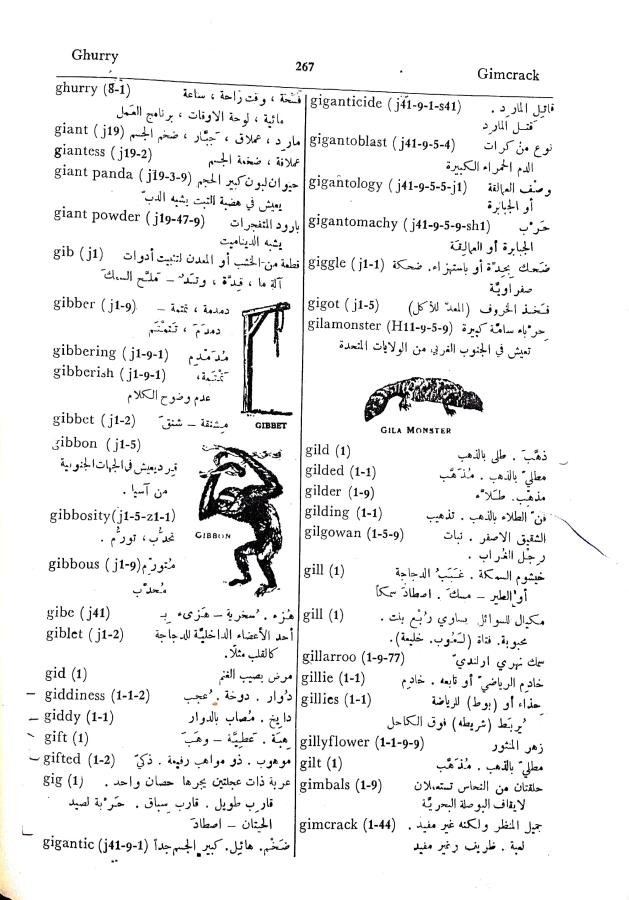 Ghurry
267
Gimcrack
ghurry (8-1) فسْحَة ، وقت راحة ، ساعة
مائية ، لوحة الاوقات ، برنامج العمل
giant (j19) مارد ، عملاق ، جبَّار ، ضخم الجسم
giantess (j19-2) عملاقة ، ضخمة الجسم
giant panda (j19-3-9) حيوان لبون كبير الحجم
يعيش في هضبة التبت يشبه الدبّ
giant powder (j19-47-9) بارود المتفجرات
يشبه الديناميت
gib (j1) قطعة من الخشب أو المعدن لتثبيت أدوات
آلة ما ،
gibber (j1-9) دمدمة ، تمتمة –
دمدمَ ، تَمْتَم
gibbering (j1-9-1) مُدَمْدِم
gibberish (j1-9-1) تَمْتَمة،
عدم وضوح الكلام
gibbet (j1-2) مِشنقة – شنقَ
GIBBET
gibbon (j1-5)
قرد يعيش في الجهات الجنوبية
من آسيا .
GIBBON
gibbosity(j1-5-z1-1)
تحدُّب ، تورُّم .
gibbous (j1-9) مُتورِّم
مُحدَّب
gibe (j41) هَزء . سُخرية – هَزىء بـ
giblet (j1-2) أحد الأعضاء الداخليَّة للدجاجة
كالقلب مثلًا.
gid (1) مرض يصيب الغنم
giddiness (1-1-2) دُوار . دوخة . عُجب
giddy (1-1) دايخ . مُصاب بالدوار
gift (1) هِبَة . عَطِيَّة – وهَبَ
gifted (1-2) موهوب . ذو مواهب رفيعة . ذكيّ
gig (1) عربة ذات عجلتين يجرها حصان واحد .
قارب طويل . قارب سباق . حَرْبة لصيد
الحيتان – اصطادَ
gigantic (j41-9-1) ضَخْم. هائِل. كبير الجسم جداً
giganticide (j41-9-1-s41) قاتِل المارد .
قَتْل المارد
gigantoblast (j41-9-5-4) نوع من كرات
الدم الحمراء الكبيرة
gigantology (j41-9-5-5-j1) وصْف العمالقة
أو الجبابرة
gigantomachy (j41-9-5-9-sh1) حَرْب
الجبابرة أو العمالِقة
giggle (j1-1) ضَحك بِحِدَّة أو باستهزاء. ضحكة
صفراويَّة
gigot (j1-5) فَخذ الخروف (المعدّ للأكل)
gilamonster (H11-9-5-9) حِرْباء سامَّة كبيرة
تعيش في الجنوب الغربي من الولايات المتحدة
GILA MONSTER
gild (1) ذهَّبَ . طلى بالذهب
gilded (1-1) مطليّ بالذهب . مُذهَّب
gilder (1-9) مذهِّب. طلَّاء
gilding (1-1) فنّ الطلاء بالذهب . تذهيب
gilgowan (1-5-9) الشقيق الاصفر . نبات
رجل الغراب .
gill (1) خيشوم السمكة . غَبَبُ الدجاجة
أو الطير – مسكَ . اصطادَ سمكاً
gill (1) مكيال للسوائل يساوي رُبْع بنت .
محبوبة. فتاة (لعوب. خليعة).
gillarroo (1-9-77) سمك نهري ارلنديّ
gillie (1-1) خادم الرياضيّ أو تابعه . خادِم
gillies (1-1) حذاء أو (بوط) للرياضة
يُربَط (شريطه) فوق الكاحل
gillyflower (1-1-9-9) زهر المنثور
gilt (1) مطليّ بالذهب . مُذهَّب
gimbals (1-9) حلقتان من النحاس تستعملان
لايقاف البوصلة البحريَّة
gimcrack (1-44) جميل المنظر ولكنه غير مفيد .
لعبة . ظريف وغير مفيد